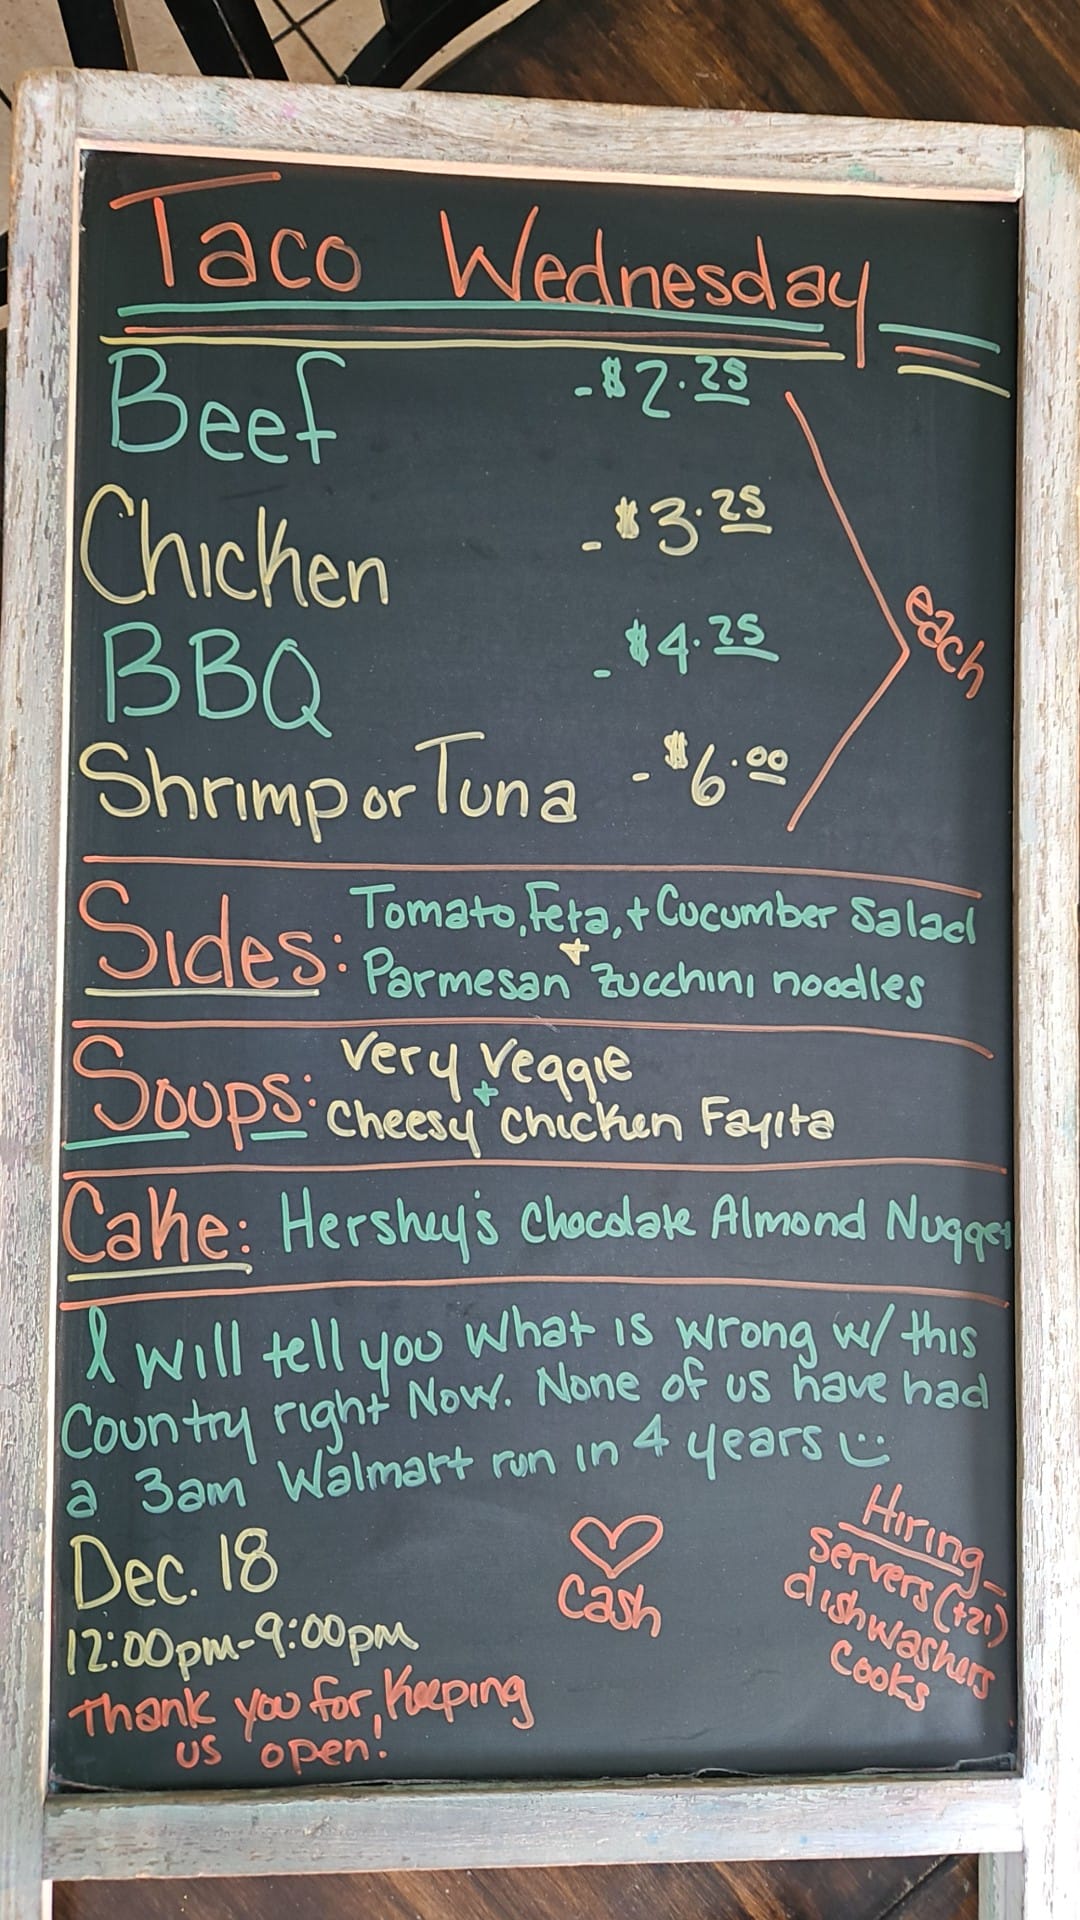 Taco Wednesday
Beef - $2.25
Chicken - $3.25
BBQ - $4.25
Shrimp or Tuna - $6.00
each
Sides: Tomato, Feta, + Cucumber Salad
+
Parmesan Zucchini noodles
Soups: Very Veggie
+
Cheesy Chicken Fajita
Cake: Hershey's Chocolate Almond Nugget
I will tell you what is wrong w/ this
Country right Now. None of us have had
a 3am Walmart run in 4 years
Dec. 18
12:00pm-9:00pm
Thank you for Keeping
us open!
♡
Cash
Hiring
Servers (+21)
dishwashers
Cooks